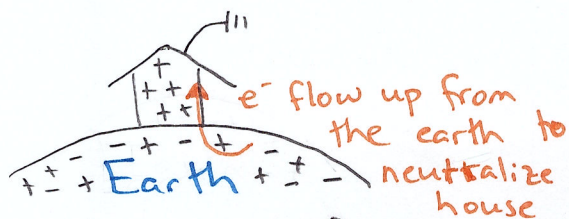 e⁻ flow up from
the earth to
neutralize
house
Earth